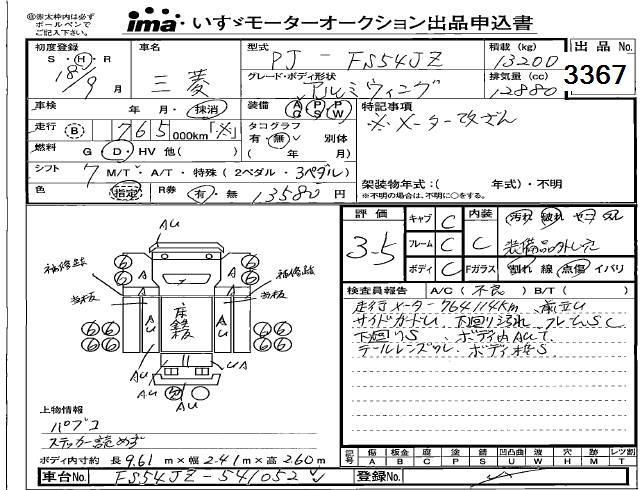 ㊟※太枠内は必ず
ボールペンで
ご記入下さい。
ima いすゞモーターオークション出品申込書
初度登録
S・H・R
18年
9月
車名
三菱
型式
PJ-FS54JZ
グレード・ボディ形状
アルミウィング
積載(kg)
13200
排気量(cc)
12880
出品No.
3367
車検
年 月・抹消
装備
AC PS PW
特記事項
※メーター改ざん
走行 B 765,000km「※」
タコグラフ
有・無 別体
( 年 月)
燃料 G・D・HV 他( )
シフト 7 M/T・A/T・特殊(2ペダル・3ペダル)
架装物年式:( 年式)・不明
※不明の場合は、不明に○をする。
色 指定
R券 有・無 13580円
評価
3-5
キャブ C
フレーム C
ボディ C
内装 C
汚れ 破れ
装備品外し有
Fガラス 割れ 線 点傷 イバリ
検査員報告 A/C(不良) B/T( )
走行メーター764114Km
サイドガードU 下回り汚れ フレームSC
下回りS ボディ内AUて
テールレンズワレ ボディ枠S
AU
補修跡
補修跡
あ板
あ板
床鉄板
A
A
AU
AU
A
A
AU
UA
AU
AU
6 6 6 6 6 6 6 6 6 6 6 6
上物情報
パブコ
ステッカー読めず
ボディ内寸約 長9.61m×幅2.41m×高2.60m
記号 傷A 板金B 腐C 塗P 錆S 凹凸曲U 波W 穴H 跡M レッ割T
車台No. FS54JZ-541052
登録No.